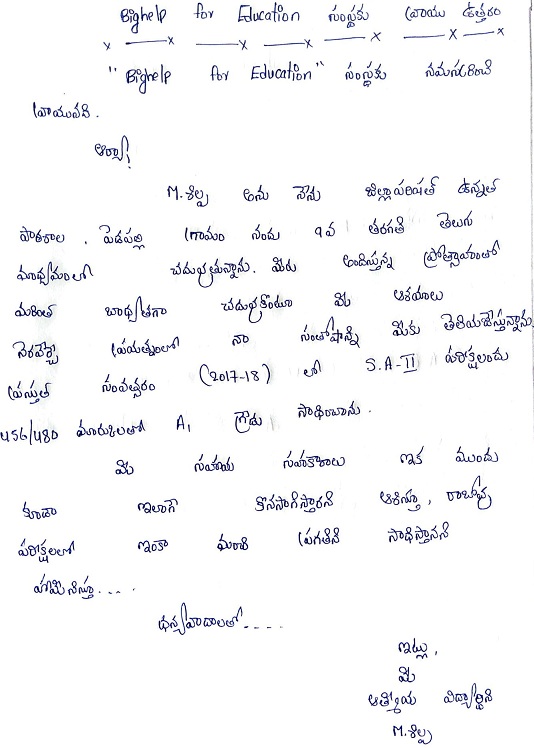 Bighelp for Education సంస్థకు వ్రాయు ఉత్తరం
"Bighelp for Education" సంస్థకు నమస్కరించి
వ్రాయునది.
ఆర్యా!
M. శిల్ప అను నేను జిల్లాపరిషత్ ఉన్నత
పాఠశాల, పెదపల్లి గ్రామం నందు 9వ తరగతి తెలుగు
మాధ్యమంలో చదువుతున్నాను. మీరు అందిస్తున్న ప్రోత్సాహంతో
మరింత బాధ్యతగా చదువుకొంటూ మీ ఆశయాలు
నెరవేర్చే ప్రయత్నంలో నా సంతోషాన్ని మీకు తెలియజేస్తున్నాను.
ప్రస్తుత సంవత్సరం (2017-18) లో S.A-II పరీక్షలందు
456/480 మార్కులతో A1 గ్రేడు సాధించాను.
మీ సహాయ సహకారాలు ఇక ముందు
కూడా ఇలాగే కొనసాగిస్తారని ఆశిస్తూ, రాబోవు
పరీక్షలలో ఇంకా మంచి ప్రగతిని సాధిస్తానని
హామీనిస్తూ....
ధన్యవాదాలతో....
ఇట్లు,
మీ
ఆత్మీయ విద్యార్థిని
M. శిల్ప